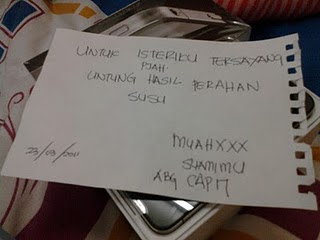 UNTUK ISTERIKU TERSAYANG
PJAH
UNTUNG HASIL PERAHAN
SUSU
MUAHXXX
SUAMIMU
ABG CAP
23/03/2011